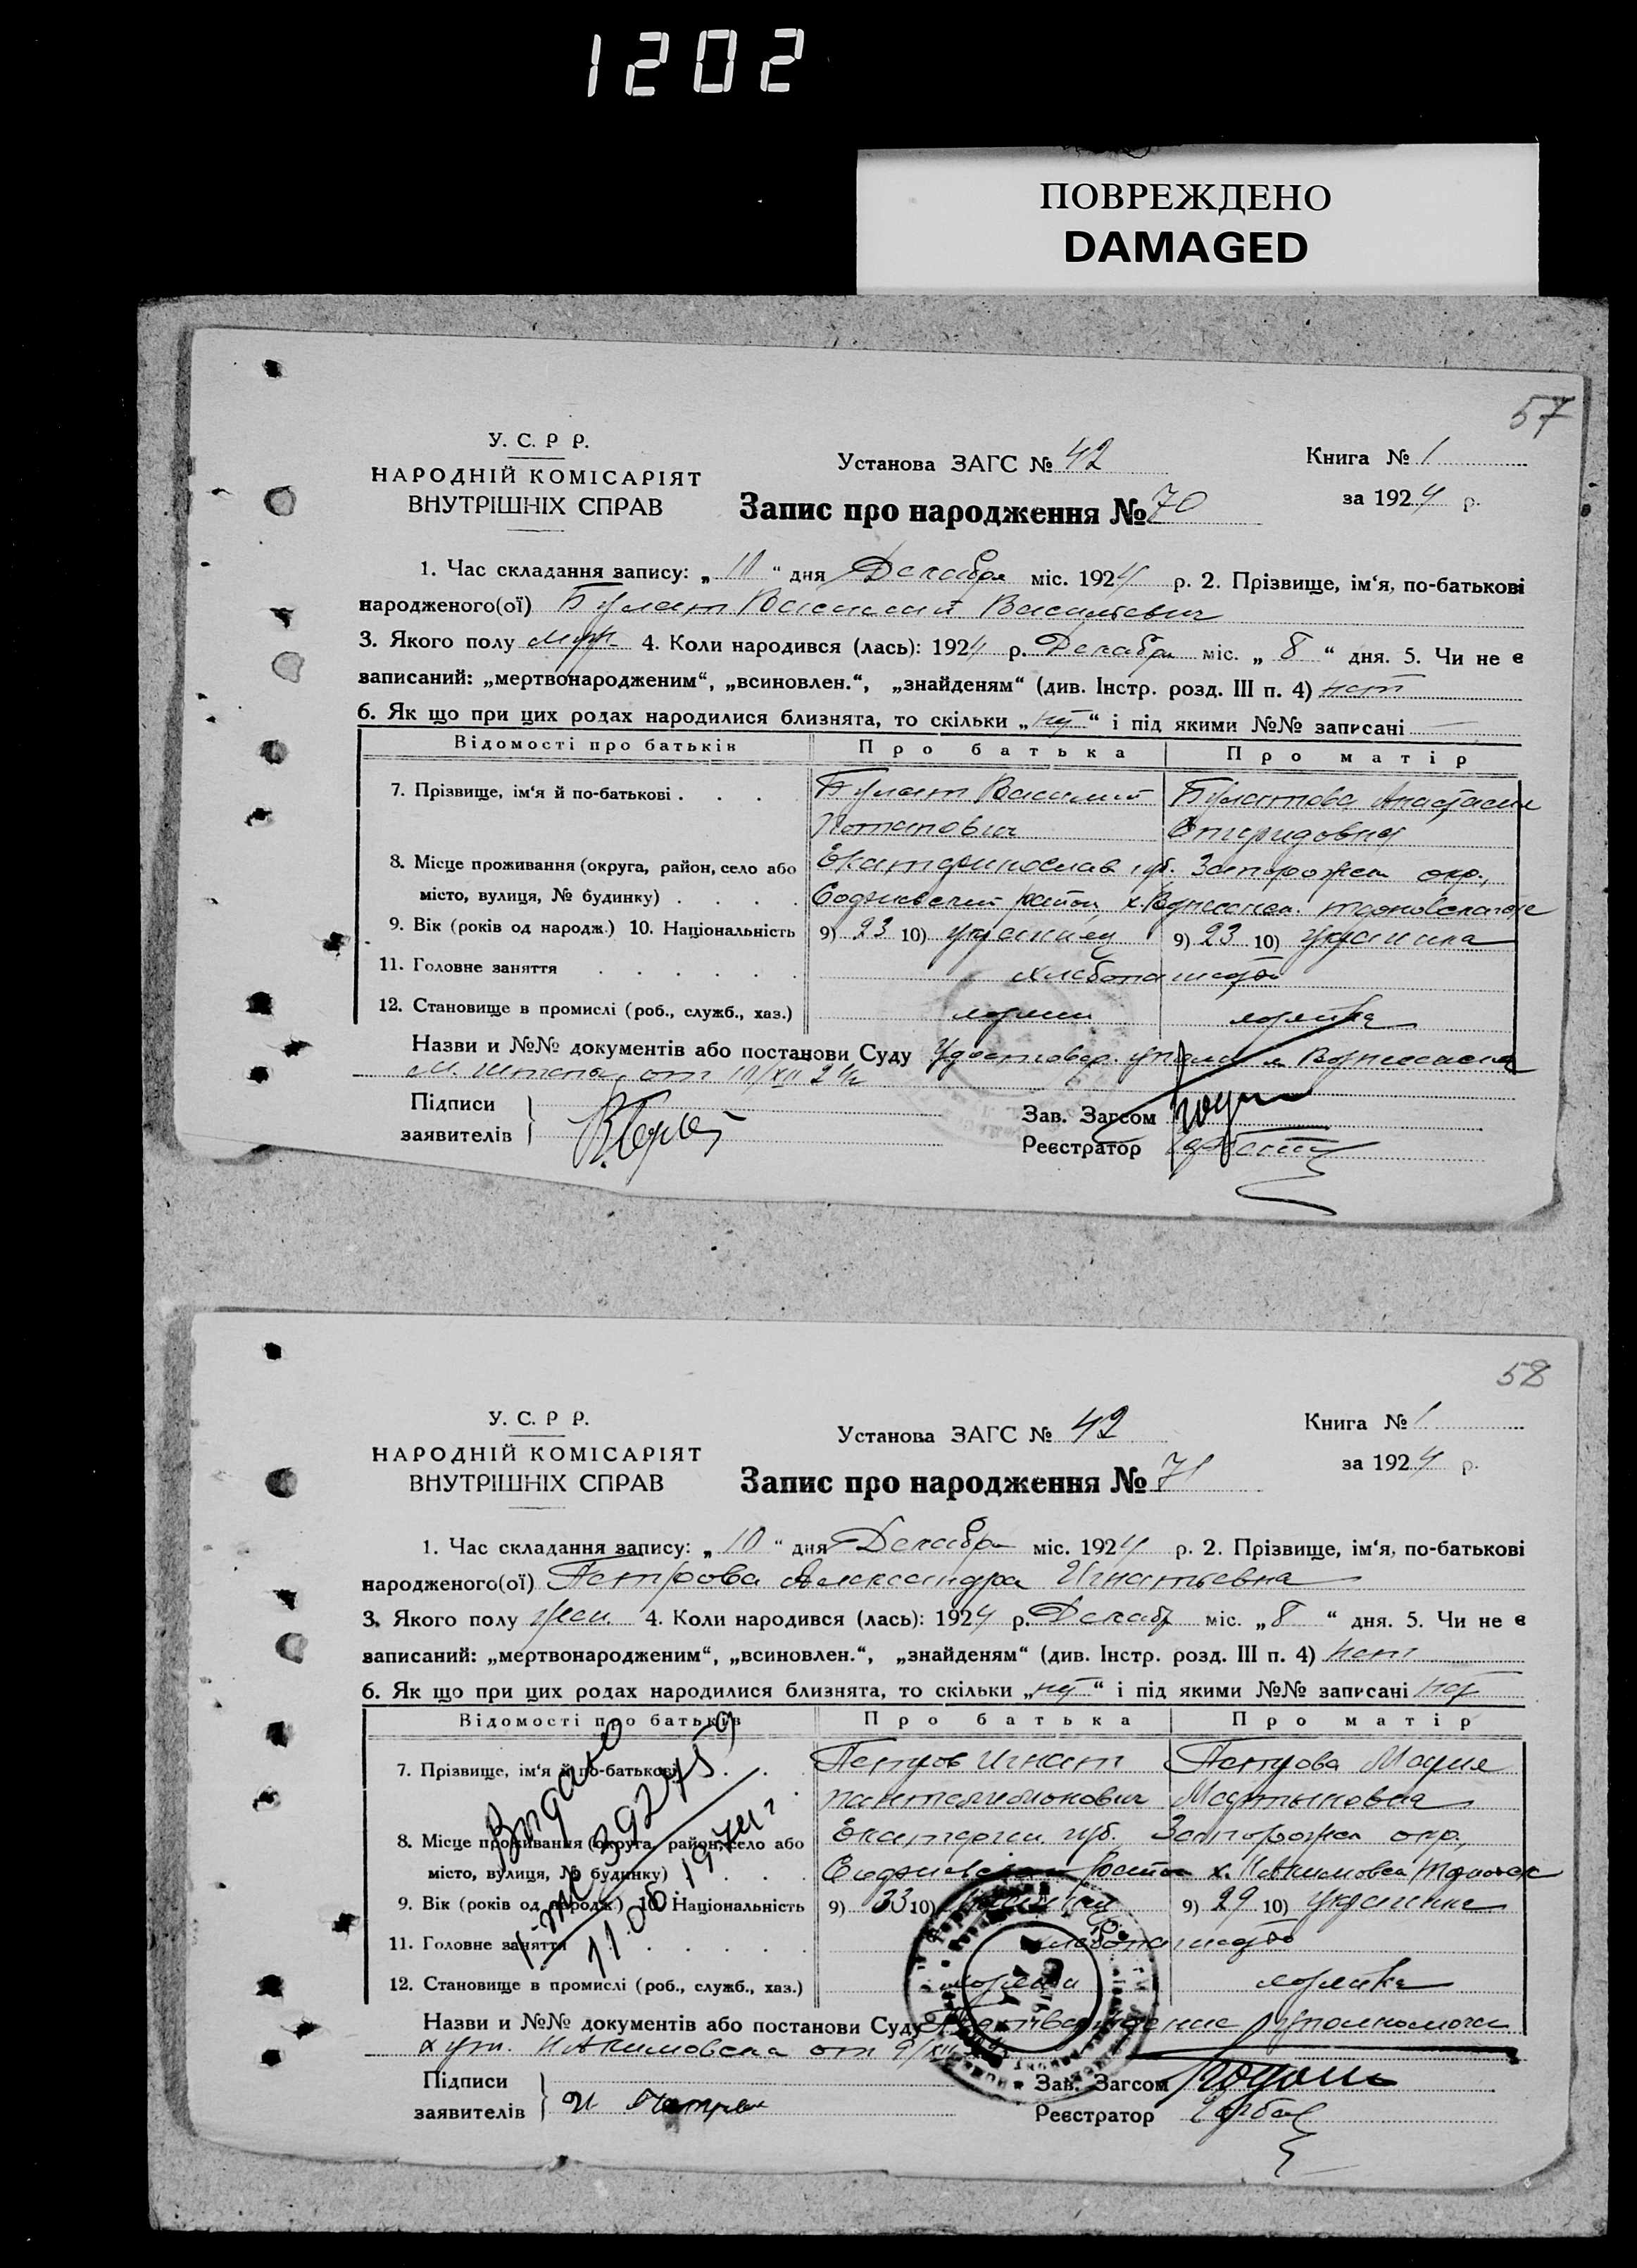 1202
ПОВРЕЖДЕНО
DAMAGED
57
У. С. Р Р.
НАРОДНІЙ КОМІСАРІЯТ
ВНУТРІШНІХ СПРАВ
Установа ЗАГС № 42
Книга № 1
Запис про народження № 70
за 1924 р.
1. Час складання запису: „ 10 “ дня Декабря міс. 1924 р. 2. Прізвище, ім‘я, по-батькові
народженого(ої) Булат Василий Васильевич
3. Якого полу муж 4. Коли народився (лась): 1924 р. Декабря міс. „ 8 “ дня. 5. Чи не є
записаний: „мертвонародженим“, „всиновлен.“, „знайденям“ (див. Інстр. розд. III п. 4) нет
6. Як що при цих родах народилися близнята, то скільки „ “ і під якими №№ записані
Відомості про батьків Про батька Про матір
7. Прізвище, ім‘я й по-батькові . . . . Булат Василий Булатова Анастасия
Потапович Спиридовна
8. Місце проживання (округа, район, село або Екатеринослав губ. Запорожск окр.,
місто, вулиця, № будинку) . . . . район х.
9. Вік (років од народж.) 10. Національність 9) 23 10) украинец 9) 23 10) украинка
11. Головне заняття . . . . . . хлебопашество
12. Становище в промислі (роб., служб., хаз.) хозяин хозяйка
Назви и №№ документів або постанови Суду Удостовер.
от 10/XII 24
Підписи
заявителів
Зав. Загсом
Реєстратор
58
У. С. Р Р.
НАРОДНІЙ КОМІСАРІЯТ
ВНУТРІШНІХ СПРАВ
Установа ЗАГС № 42
Книга № 1
Запис про народження № 71
за 1924 р.
1. Час складання запису: „ 10 “ дня Декабря міс. 1924 р. 2. Прізвище, ім‘я, по-батькові
народженого(ої) Петрова Александра Игнатьевна
3. Якого полу жен. 4. Коли народився (лась): 1924 р. Декабр міс. „ 8 “ дня. 5. Чи не є
записаний: „мертвонародженим“, „всиновлен.“, „знайденям“ (див. Інстр. розд. III п. 4) нет
6. Як що при цих родах народилися близнята, то скільки „ “ і під якими №№ записані
Відомості про батьків Про батька Про матір
7. Прізвище, ім‘я й по-батькові . . . Петров Игнат Петрова Мария
Пантелимонович Мартыновна
8. Місце проживання (округа, район, село або губ. Запорожск окр.,
місто, вулиця, № будинку) . . . район х.
9. Вік (років од народж.) 10. Національність 9) 33 10) украинец 9) 29 10) украинка
11. Головне заняття . . . . . . хлебопашество
12. Становище в промислі (роб., служб., хаз.) хозяин хозяйка
Видано
11.06.1974г
Назви и №№ документів або постанови Суду
хут. от 9/XII 24
Підписи
заявителів И Петров
Зав. Загсом
Реєстратор